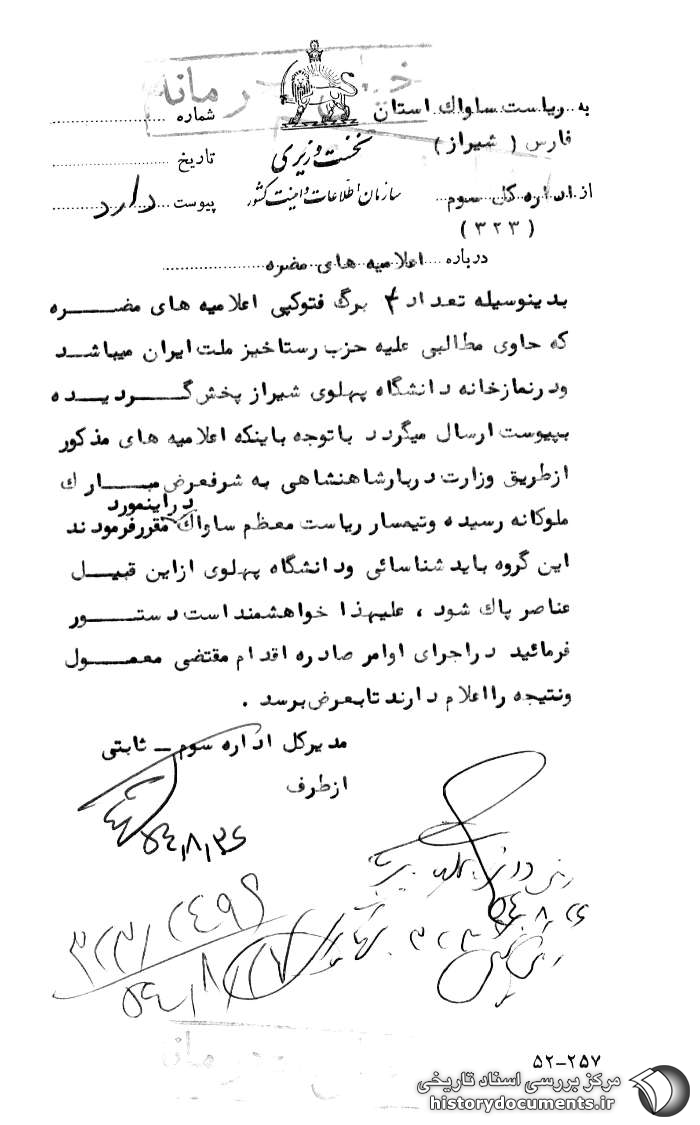 خیلی محرمانه
به ریاست ساواک استان
فارس ( شیراز )
از اداره کل سوم
( ۳۲۳ )
نخست وزیری
سازمان اطلاعات و امنیت کشور
شماره
تاریخ
پیوست دارد
درباره اعلامیه های مضره
بدینوسیله تعداد ۴ برگ فتوکپی اعلامیه های مضره
که حاوی مطالبی علیه حزب رستاخیز ملت ایران میباشد
و در نمازخانه دانشگاه پهلوی شیراز پخش گردیده
بپیوست ارسال میگردد با توجه باینکه اعلامیه های مذکور
از طریق وزارت دربار شاهنشاهی به شرفعرض مبارک
ملوکانه رسیده و تیمسار ریاست معظم ساواک در اینمورد مقرر فرمودند
این گروه باید شناسائی و دانشگاه پهلوی از این قبیل
عناصر پاک شود ، علیهذا خواهشمند است دستور
فرمائید در اجرای اوامر صادره اقدام مقتضی معمول
و نتیجه را اعلام دارند تا بعرض برسد .
مدیرکل اداره سوم ـ ثابتی
از طرف
۵۲-۲۵۷
مرکز بررسی اسناد تاریخی
historydocuments.ir